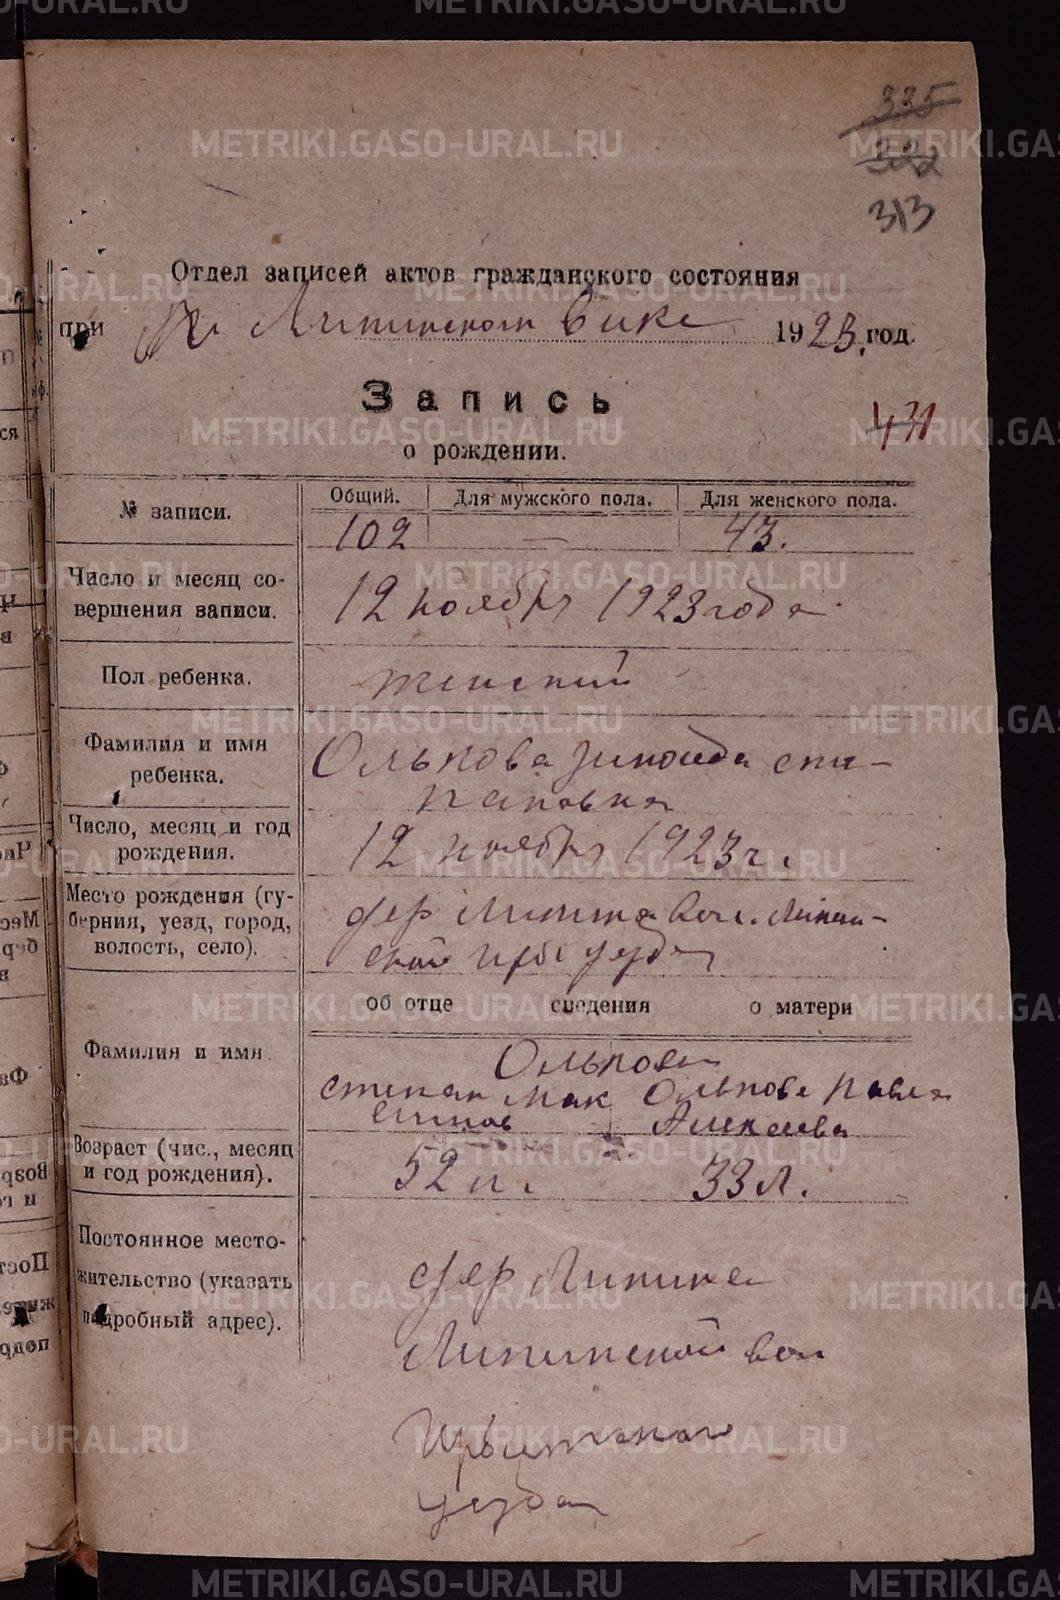 335
322
313
Отдел записей актов гражданского состояния
при Липинском Вике 1923 год.
Запись
431
о рождении.
№ записи.
Общий. Для мужского пола. Для женского пола.
102 — 43.
Число и месяц со-
вершения записи.
12 ноября 1923 года
Пол ребенка.
женский
Фамилия и имя
ребенка.
Олькова Зиноида Сти-
пановна
Число, месяц и год
рождения.
12 ноября 1923 г.
Место рождения (гу-
берния, уезд, город,
волость, село).
дер Липина Вол. Липин-
ской Ирб уезда
об отце сведения о матери
Фамилия и имя
Ольков
Степан Мак Олькова Павла
симов Алексеева
Возраст (чис., месяц
и год рождения).
52 л. 33 л.
Постоянное место-
жительство (указать
подробный адрес).
дер Липина
Липинской вол
Ирбитского
уезда
METRIKI.GASO-URAL.RU